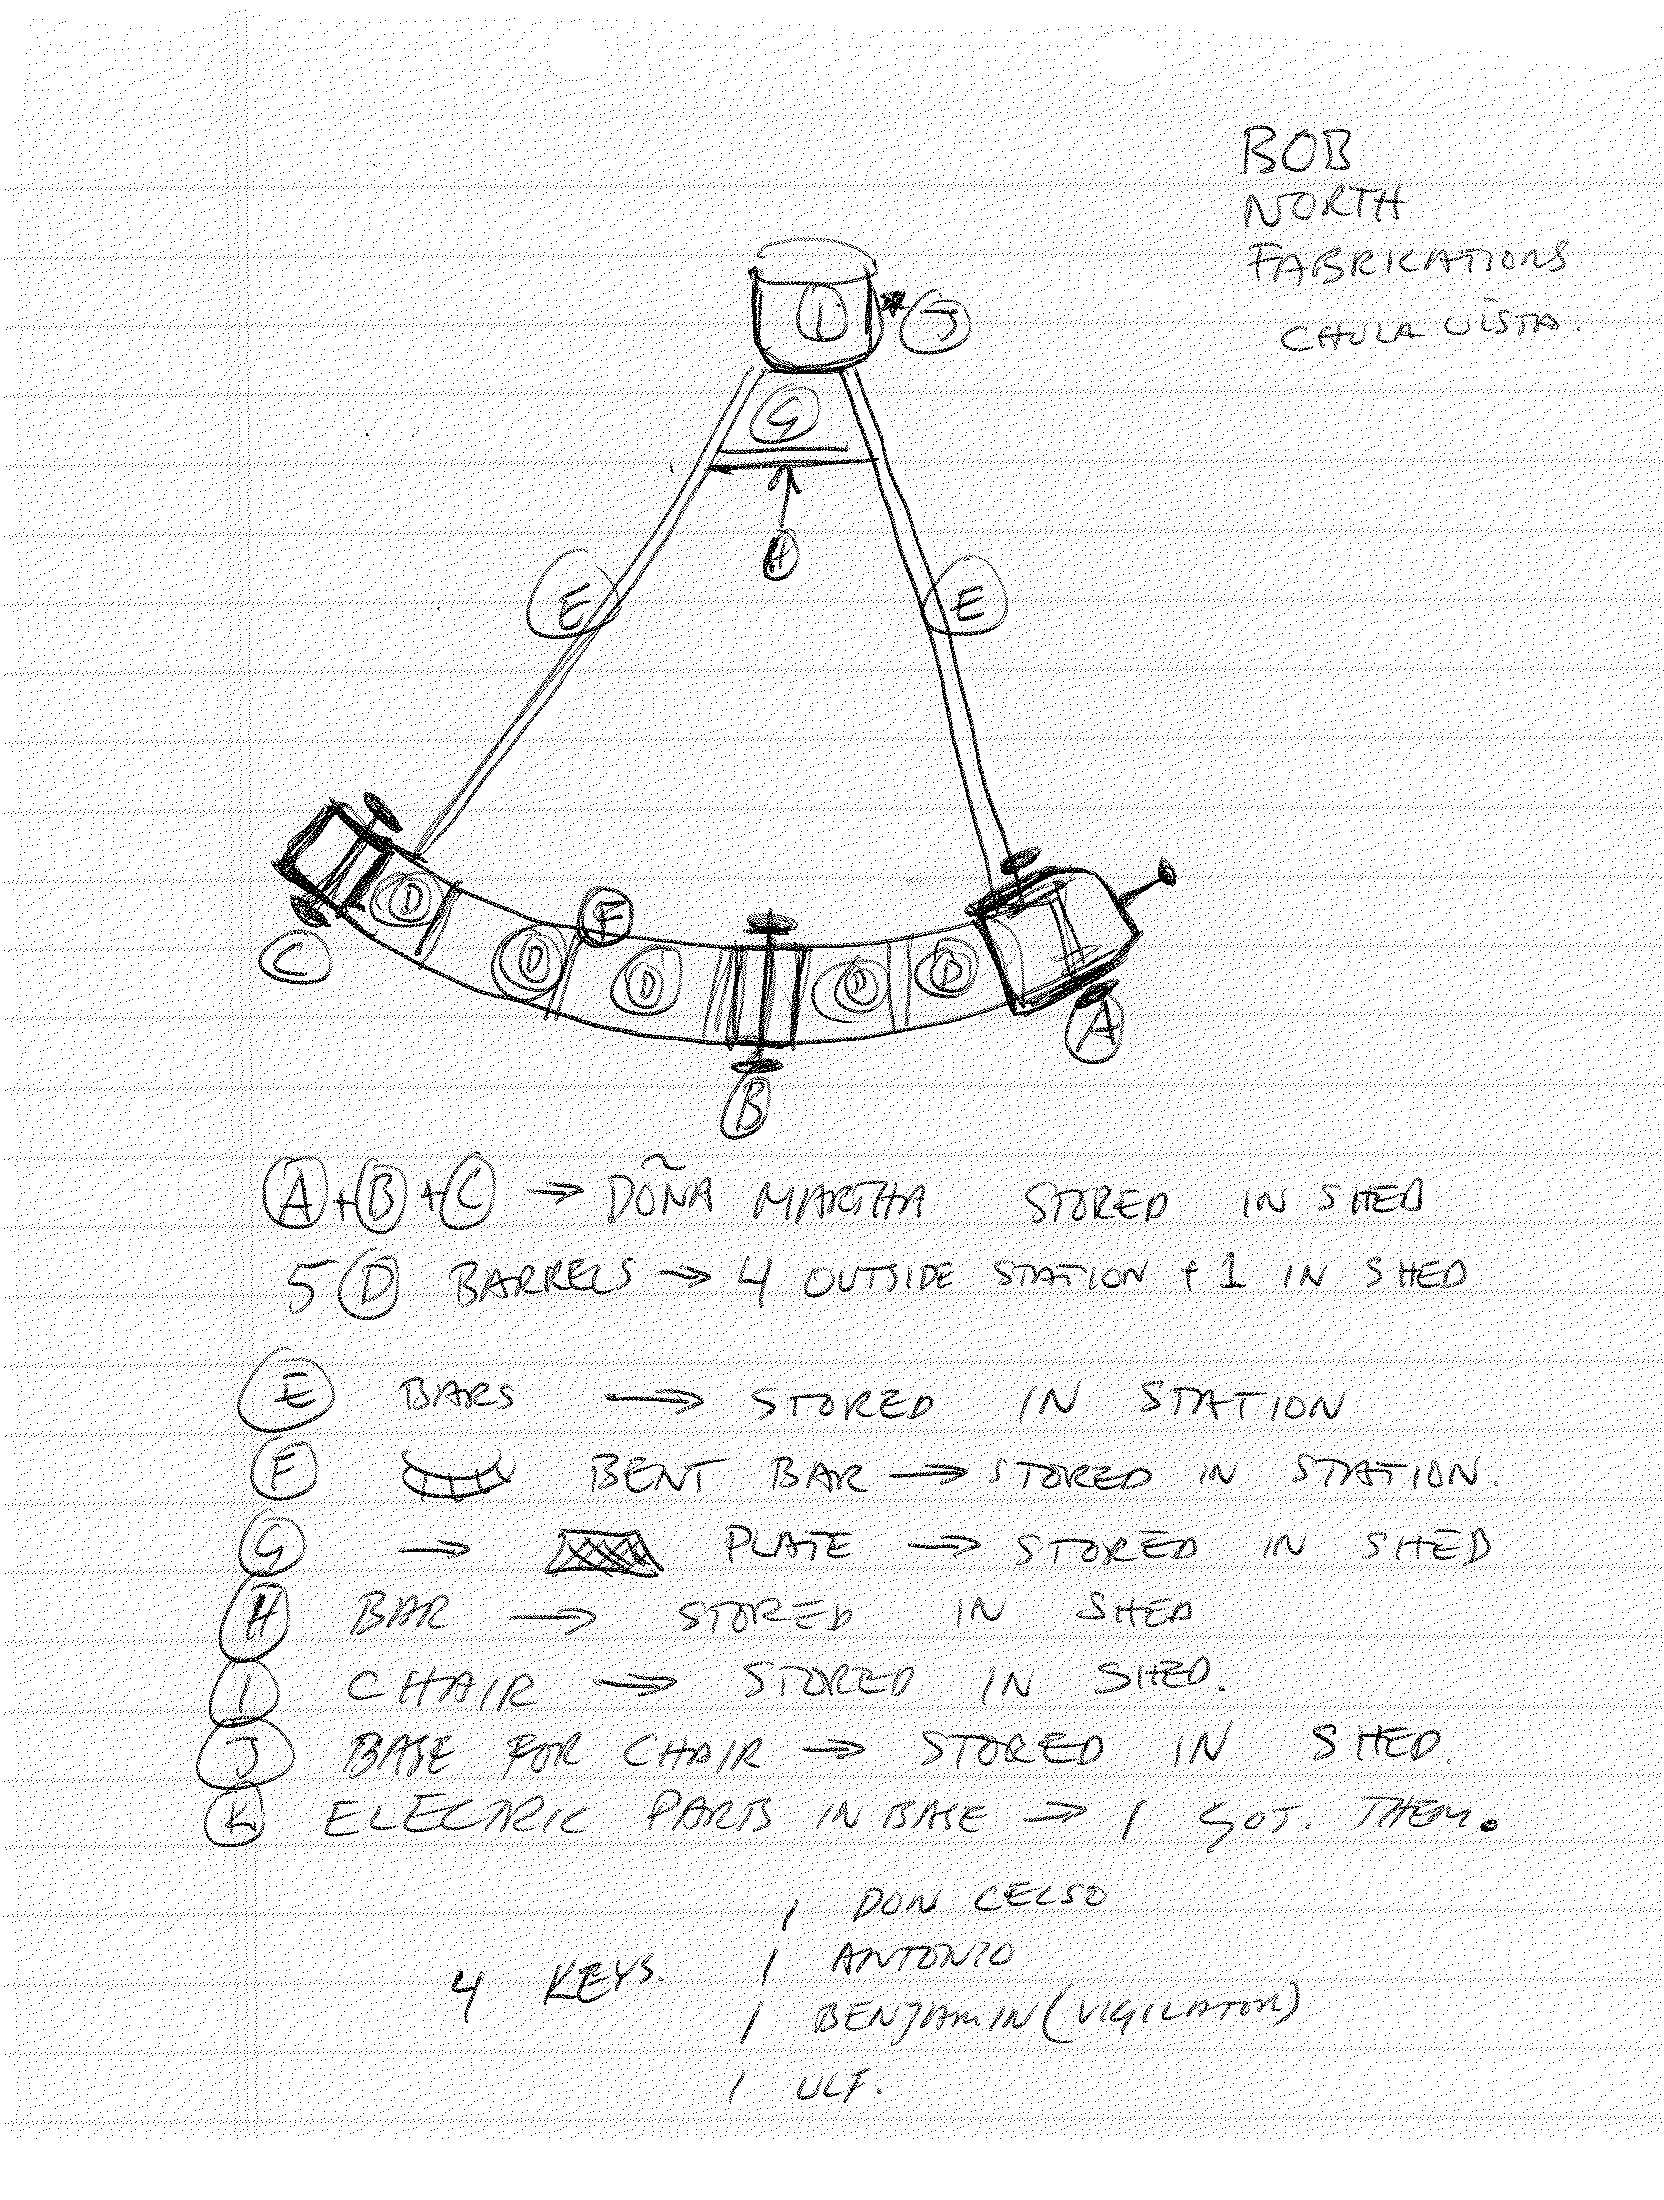 BOB
NORTH
FABRICATIONS
CHULA VISTA.
I
J
G
H
E
E
D
F
D
D
D
D
C
A
B
A + B + C → DOÑA MARTHA STORED IN SHED
5 D BARRELS → 4 OUTSIDE STATION + 1 IN SHED
E BARS → STORED IN STATION
F BENT BAR → STORED IN STATION.
G → PLATE → STORED IN SHED
H BAR → STORED IN SHED
I CHAIR → STORED IN SHED.
J BASE FOR CHAIR → STORED IN SHED.
K ELECTRIC PARTS IN BASE → I GOT. THEM.
1 DON CELSO
4 KEYS. 1 ANTONIO
1 BENJAMIN (VIGILATOR)
1 ULF.